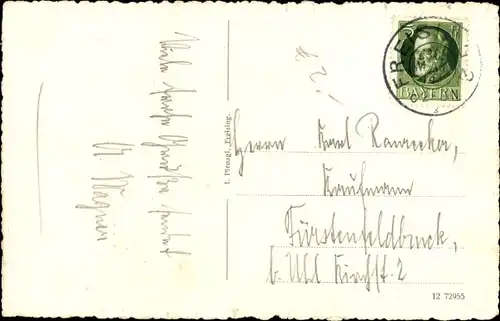 Viele herzliche Grüße sendet
A. Wagner
I. Plenagl, Freising.
5 P
BAYERN
FREIS
Herrn Karl
Kaufmann
Fürstenfeldbruck,
b. Uhl Kirchst. 2
12 72955